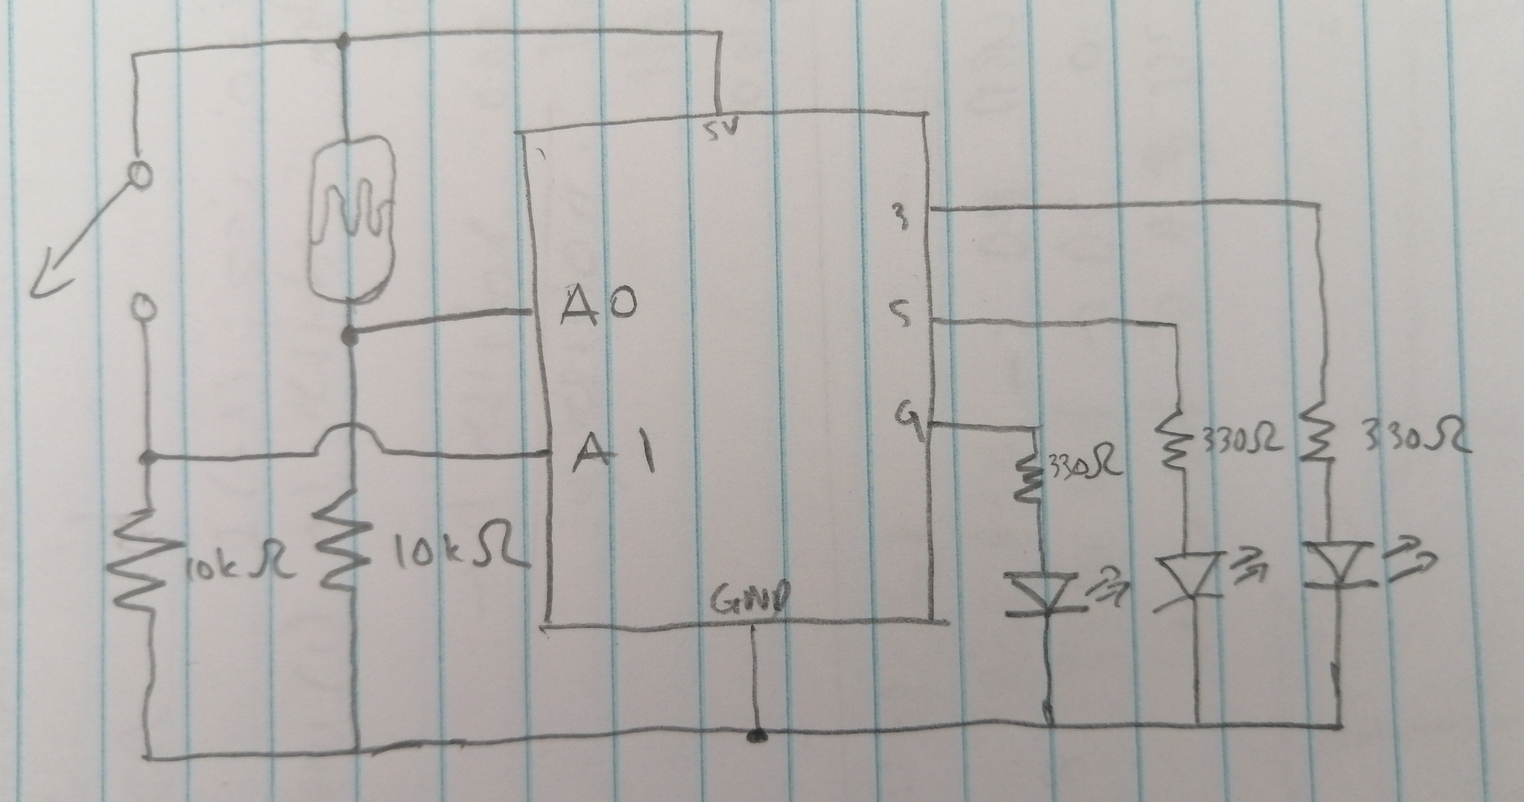 5V
3
A0
5
9
A1
330Ω
330Ω
330Ω
10kΩ
10kΩ
GND